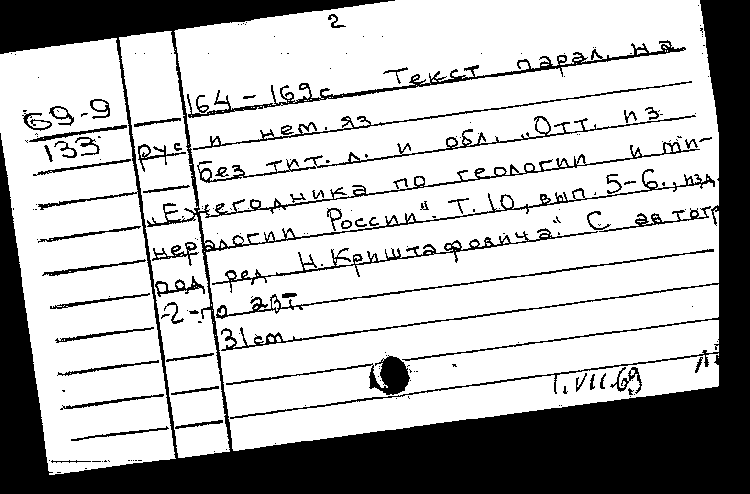 2
69-9
133
164-169с. Текст парал. на
рус. и нем. яз.
Без тит. л. и обл. „Отт. из
„Ежегодника по геологии и ми-
нералогии России“. Т. 10, вып. 5-6., изд.
под ред. Н. Криштафовича“. С автогр
2-го авт.
31 см.
1.VII.69